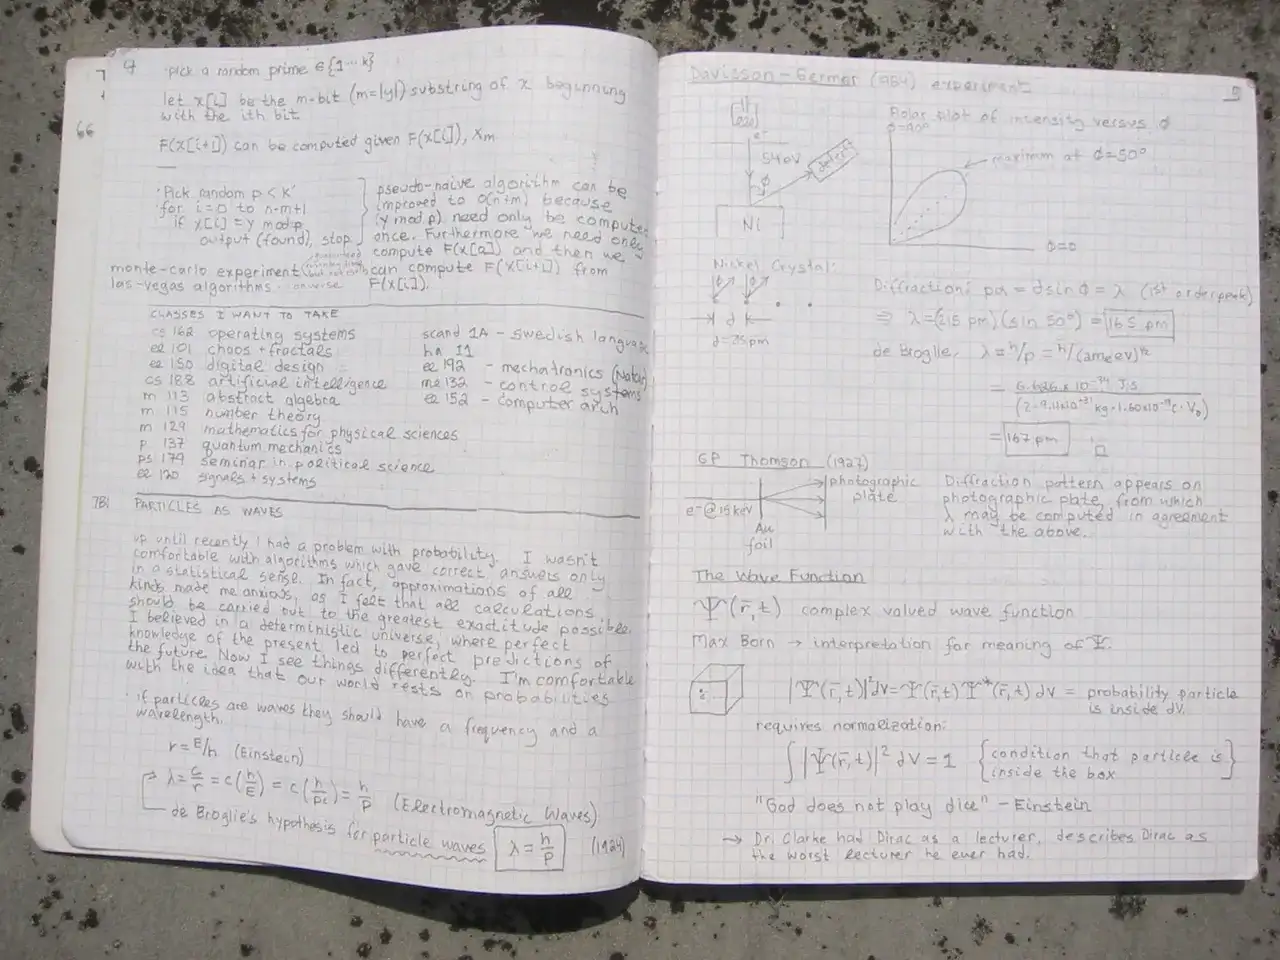 4
66
· pick a random prime ∈ {1 ... k}
let x[i] be the m-bit (m=|y|) substring of x beginning
with the ith bit
F(x[i+1]) can be computed given F(x[i]), xm
'Pick random p < K'
for i=0 to n-m+1
if x[i] = y mod p
output (found), stop
pseudo-naive algorithm can be
improved to O(n+m) because
(y mod p) need only be computed
once. Furthermore we need only
compute F(x[0]) and then we
can compute F(x[i+1]) from
F(x[i]).
monte-carlo experiment
las-vegas algorithms
CLASSES I WANT TO TAKE
cs 162 operating systems
ee 101 chaos + fractals
ee 150 digital design
cs 188 artificial intelligence
m 113 abstract algebra
m 115 number theory
m 129 mathematics for physical sciences
p 137 quantum mechanics
ps 179 seminar in political science
ee 120 signals + systems
scand 1A - swedish language
hn 11
ee 192 - mechatronics
me 132 - control systems
ee 152 - computer arch
7Bi PARTICLES AS WAVES
up until recently I had a problem with probability. I wasn't
comfortable with algorithms which gave correct answers only
in a statistical sense. In fact, approximations of all
kinds made me anxious, as I felt that all calculations
should be carried out to the greatest exactitude possible.
I believed in a deterministic universe, where perfect
knowledge of the present led to perfect predictions of
the future. Now I see things differently. I'm comfortable
with the idea that our world rests on probabilities
· if particles are waves they should have a frequency and a
wavelength.
r = E/h (Einstein)
λ = c/r = c(h/E) = c(h/pc) = h/p (Electromagnetic Waves)
de Broglie's hypothesis for particle waves λ = h/p (1924)
Davisson-Germer (1954) experiment
5
e⁻
54 eV
detect
φ
Ni
Polar plot of intensity versus φ
φ=90°
maximum at φ=50°
φ=0
Nickel Crystal:
φ φ
d
d=215 pm
Diffraction: pd = d sin φ = λ (1st order peak)
⇒ λ = (215 pm)(sin 50°) = 165 pm
de Broglie, λ = h/p = h/(2meeV)^1/2
= 6.626 x 10^-34 J·s
(2·9.11x10^-31 kg·1.60x10^-19 C·V0)
= 167 pm
GP Thomson (1927)
e⁻ @ 15 keV
Au
foil
photographic
plate
Diffraction pattern appears on
photographic plate, from which
λ may be computed in agreement
with the above.
The Wave Function
Ψ(r̄,t) complex valued wave function
Max Born → interpretation for meaning of Ψ.
|Ψ(r̄,t)|²dV = Ψ(r̄,t)Ψ*(r̄,t) dV = probability particle
is inside dV.
requires normalization:
∫|Ψ(r̄,t)|² dV = 1 {condition that particle is
inside the box}
"God does not play dice" - Einstein
→ Dr. Clarke had Dirac as a lecturer, describes Dirac as
the worst lecturer he ever had.